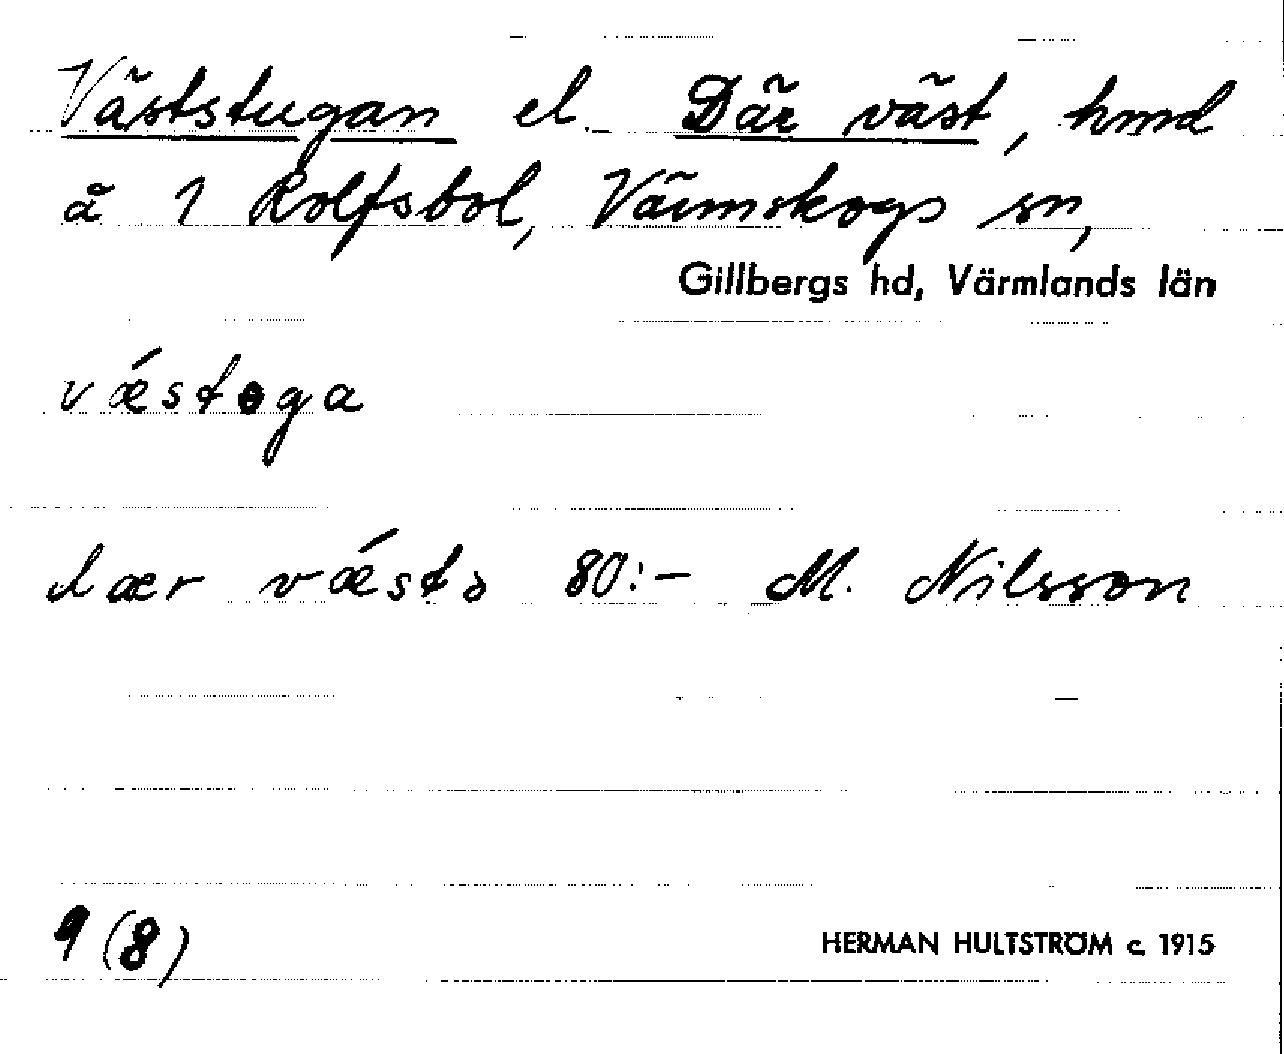 Väststugan el. Där väst, hmd
å 1 Rolfsbol, Värmskogs sn,
Gillbergs hd, Värmlands län
væ´stoga
dær væ´stɔ 80:- M. Nilsson
9 (8)
HERMAN HULTSTRÖM c. 1915